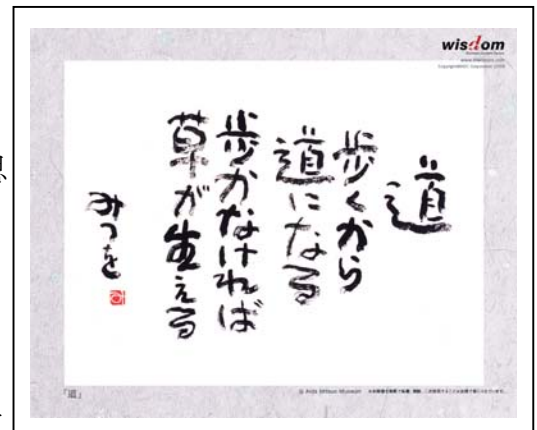 wisdom
道
歩くから
道になる
歩かなければ
草が生える
みつを
「道」
© Aida Mitsuo Museum